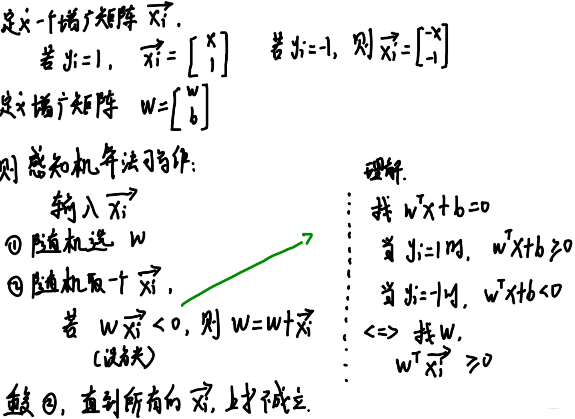 定义一个增广矩阵 $\vec{x_i}$.
若 $y_i=1$, $\vec{x_i}=\begin{bmatrix} x \\ 1 \end{bmatrix}$ 若 $y_i=-1$, 则 $\vec{x_i}=\begin{bmatrix} -x \\ -1 \end{bmatrix}$
定义增广矩阵 $w=\begin{bmatrix} w \\ b \end{bmatrix}$
则感知机算法可写作:
输入 $\vec{x_i}$
① 随机选 w
② 随机取一个 $\vec{x_i}$,
若 $w\vec{x_i}<0$, 则 $w=w+\vec{x_i}$
重复②, 直到所有的 $\vec{x_i}$, 上式不成立.
理解.
找 $w^Tx+b=0$
当 $y_i=1$时, $w^Tx+b\geqslant0$
当 $y_i=-1$时, $w^Tx+b<0$
<=> 找 w,
$w^T\vec{x_i}\geqslant0$